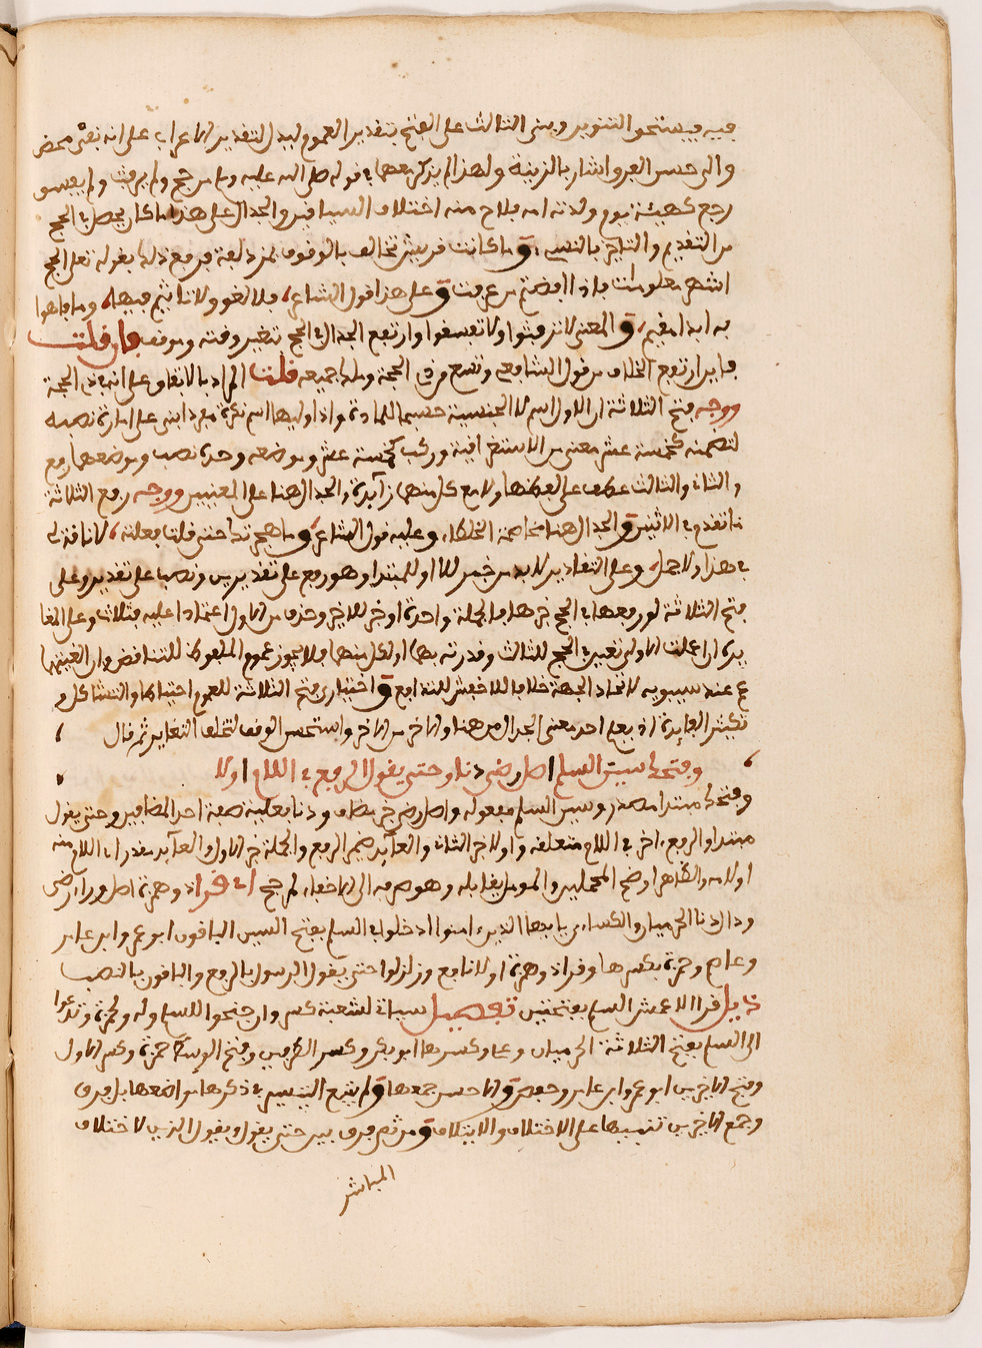 فيه فيستحق التنوين وبنى الثالث على الفتح بتقدير العموم ليدل لتقدير الاعراب على انه نفى محض
والى حسن الفرق اشار بالزينة ولهذا لم يذكر معهما في قوله صلى الله عليه وسلم من حج ولم يرفث ولم يفسق
رجع كهيئة يوم ولدته امه فلاح منه اختلاف السياقين والجدال على هذا ما كان يحصل في الحج
من التقديم والتاخير بالنسيء وما كانت قريش تخالف بالوقوف بمزدلفة فرفع ذلك بقوله تعلى الحج
اشهر معلومات فاذا افضتم من عرفت وعلى هذا قول الشاعر فلا لغو ولا تاثيم فيها وما فاهوا
به ابدا مقيم و المعنى لا ترفثوا ولا تفسقوا وارتفع الجدال في الحج بتغير وقته وموقفه فان قلت
فاين ارتفع الخلاف من قول الشافعي وتسع من ذي الحجة وملك جميعه قلت المراد بالاتفاق على انه في ذي الحجة
ووجه فتح الثلاثة ان الاول اسم لا الجنسية حسما للمادة واذا وليها اسم نكرة مفرد ابنى على امارة نصبه
لتضمنه كخمسة عشر معنى من الاستغراقية وركب كخمسة عشر وموضعه وحده نصب وموضعهما رفع
والثاني والثالث عطف على لفظها ولا مع كل منهما زائدة والجدال هنا على المعنيين ووجه رفع الثلاثة
ما تقدم في الاثنين والجدال هنا مخاصمة الخلطاء وعليه قول الشاعر وما هجرتك حتى قلت معلنة لا ناقة لي
في هذا ولا جمل وعلى التقادير لا بد من خبر للا او للمبتدا وهو رفع على تقديرين ونصب على تقدير وعلى
فتح الثلاثة لو رفعها في الحج خبرها فالجملة واحدة او خبر للاخر وحذف من الاول اعتمادا عليه فثلاث وعلى المغا
يرة ان اعملت الاولى تعين في الحج للثالث وقدرته بهما او لكل منهما ولا يجوز عموم الملفوظ للتناقض وان الغيتهما
ع عند سيبويه لاتحاد الجهة خلافا للاخفش للتدافع و اختياري فتح الثلاثة للعموم احتياطا والتشاكل و
تكثير الفايدة اذ يعلم احد معنى الجدال من هنا والاخر من الاخر واستحسن الوقف لتخلف التغاير ثم قال
وفتحك سين السلم اصل رضى دنا وحتى يقول الرفع في اللام اولا
وفتحك مبتدا مصدر وسين السلم مفعوله واصل رضى خبر مضاف ودنا فعلية صفة احد المضافين وحتى يقول
مبتدا والرفع اخر في اللام متعلقه واولا خبر الثاني والعائد ضمير الرفع والجملة خبر الاول والعائد مقدر اي اللام منه
او لامه والظاهر اوضح المحملين والمومل يقابله وهو صرفه الى الاخفاء لمرجح اي قرا ذو همزة اصل وراء رضى
ودال دنا الحرميان والكساءي يايها الذين ءامنوا ادخلوا في السلم بفتح السين الباقون ابو عمرو وابن عامر
وعاصم وحمزة بكسرها وقرا ذو همزة اولا نافع وزلزلوا حتى يقول الرسول بالرفع والباقون بالنصب
تذييل قرا الاعمش السلم بفتحتين تفصيل سياتي لشعبة كسر وان جنحوا للسلم وله ولحمزة وتدعوا
الى السلم بفتح الثلاثة الحرميان وعلي وكسرها ابو بكر وكسر الطرفين وفتح الوسط حمزة وكسر الاول
وفتح الاخرين ابو عمرو وابن عامر وحفص والاحسن جمعها ولم يتبع التيسير في ذكرها مواضعها بل فرق
وجمع الاخرين تنبيها على الاختلاف والايتلاف ومن ثم فرق بين حتى يقول ويقول الذين لاختلاف
المباشر